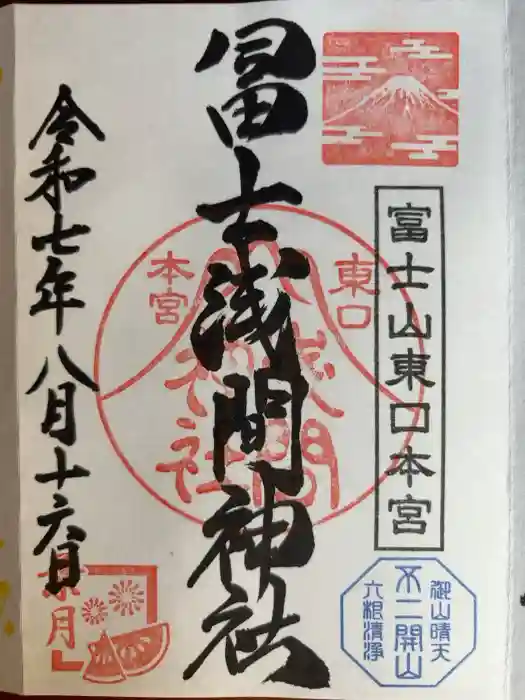 富士山東口本宮
御山晴天
不二開山
六根清浄
冨士浅間神社
東口
本宮
浅間
神社
令和七年八月十六日
葉月